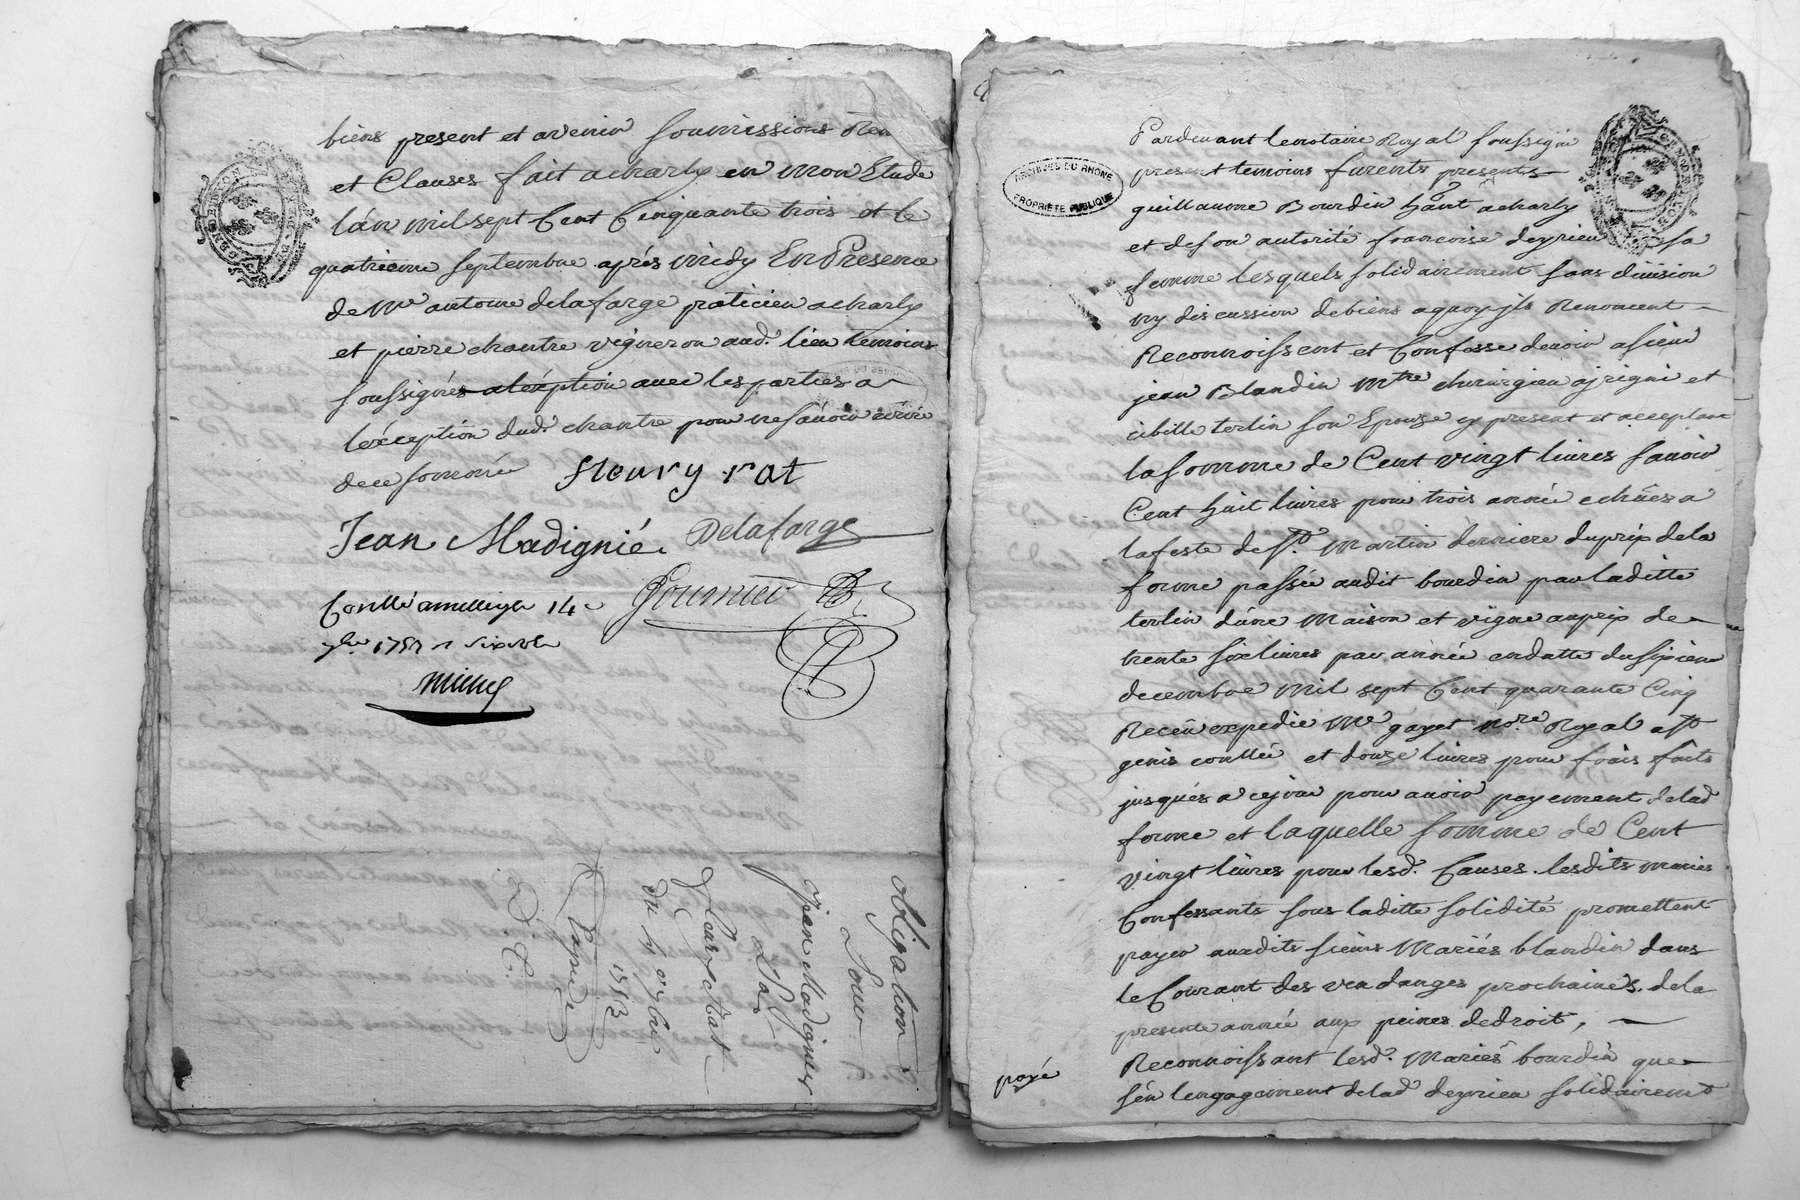 biens present et avenir soumissions Ren
et Clauses fait acharly en mon Etude
lán mil sept Cent Cinquante trois et le
quatrieme septembre aprés midy En Presence
de Me antoine delafarge praticien acharly
et pierre chantre vigneron aud. lieu temoins
soussignés aléxeption avec les parties a
léxception dud. chantre pour nesavoir écrire
dece sommé fleury rat
Jean Madignié. Delafarge
Conllé amillery le 14e
7bre 1753 r six sols
obligation
Pour
Jean Madignier
Sr
Fleury Rat
du 4e 7bre
1753
ARCHIVES DU RHÔNE
PROPRIÉTÉ PUBLIQUE
Pardevant lenotaire Royal soussigné
present temoins furents presents
guillaume Bourdin hant acharly
et deson autorité francoise deyrieu sa
femme lesquels solidairement sans division
ny discussion debiens aquoy jls Renoncent
Reconnoissent et Confesse devoir asieur
jean Blandin Mtre chirurgien ajrigni et
cibille terlin son Epouze cy present et acceptant
lasomme de Cent vingt livres savoir
Cent huit livres pour trois année echües a
lafeste de St. Martin derniere duprix dela
ferme passée audit bourdin par laditte
terlin dúne Maison et vigne auprix de
trente six livres par année endatte dusixieme
decembre mil sept Cent quarante Cinq
Receu expedie Me gayet nore. Royal a St
genis conllé et douze livres pour frais faits
jusqués a cejour pour avoir payement delad
ferme et laquelle somme de Cent
vingt livres pour lesd. Causes. lesdits mariés
Confessants sous laditte solidité promettent
payer auxdits sieurs Mariés blandin dans
le Courant des vendanges prochaines. dela
presente année aux peines dedroit,
Reconnoissant lesd. Mariés bourdin que
payé
sén lengagement delad deyrieu solidairement